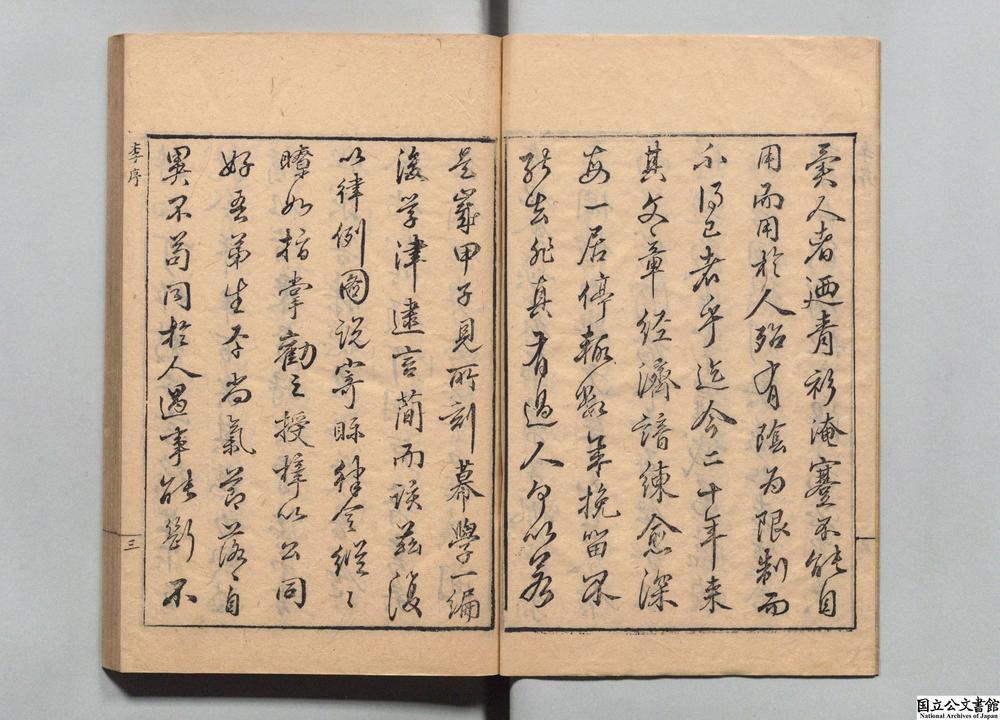 異人者廼青衫淹蹇不能自
用而用於人殆有陰為限制而
不得已者乎迄今二十年来
其文章經濟諳練愈深
每一居停輒數年挽留不
能去非真有過人何以若
是歲甲子見所刻幕學一編
後学津逮言簡而該茲復
以律例圖説寄眎律令縱〻
瞭如指掌勸之授梓以公同
好吾弟生平尚氣節落〻自
異不苟同於人遇事能斷不
李序
三
国立公文書館
National Archives of Japan